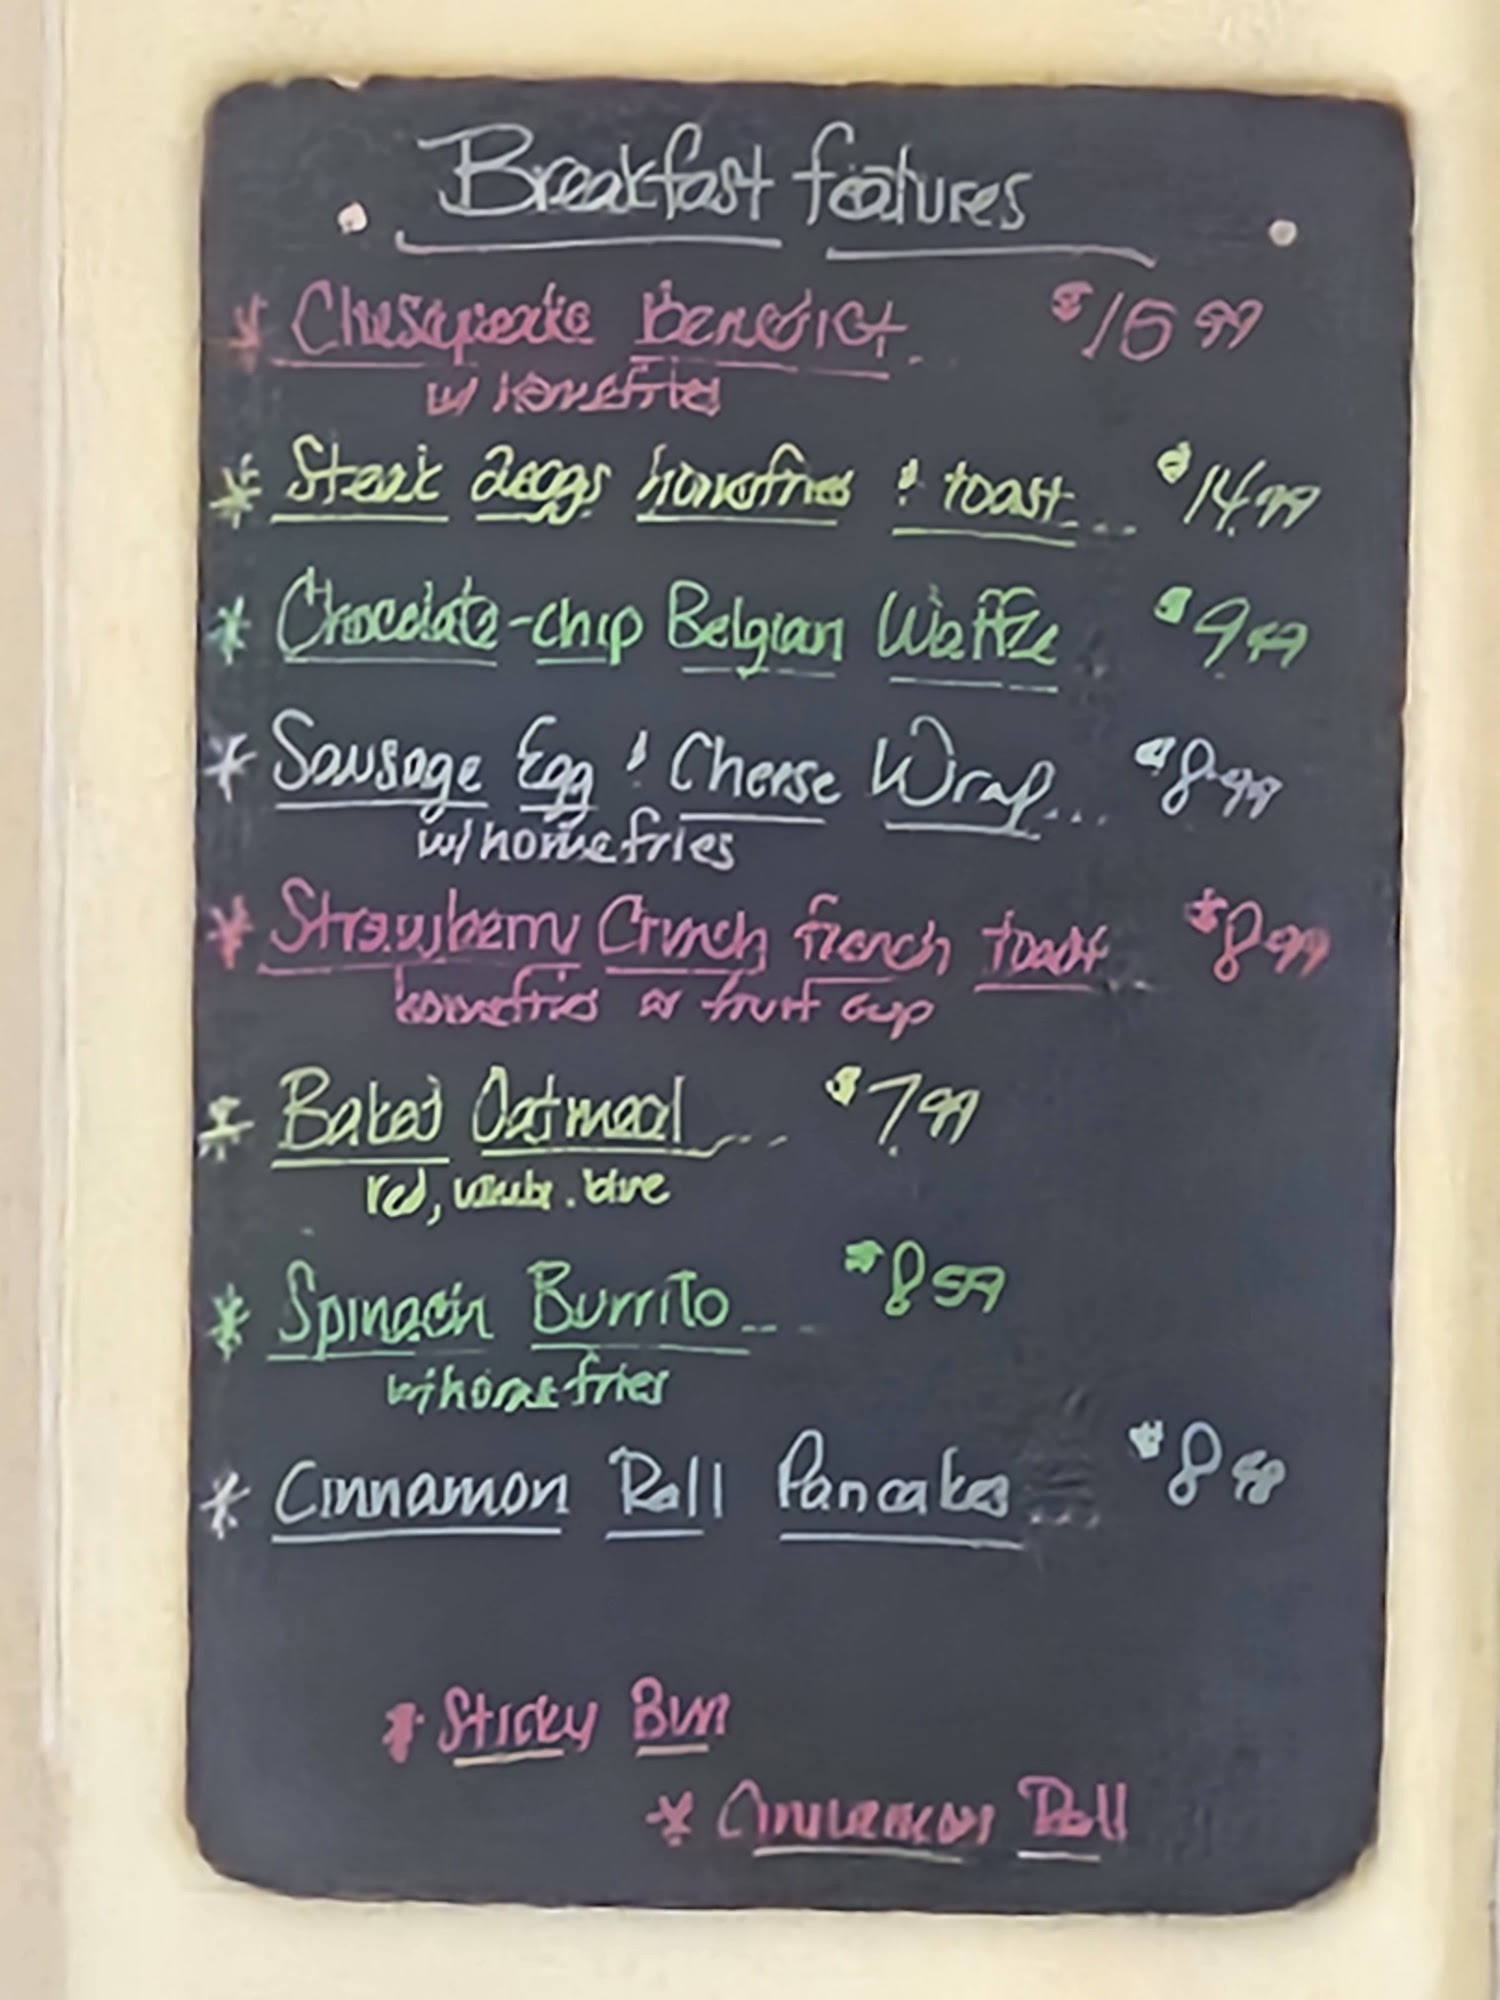 Breakfast features
* Chesapeake Benedict.. $15 99
w/ homefries
* Steak 2eggs homefries & toast... $14.99
* Chocolate-chip Belgian Waffle $9.49
* Sausage Egg & Cheese Wrap... $8.99
w/homefries
* Strawberry Crunch french toast $8 99
homefries or fruit cup
* Baked Oatmeal... $7.99
red, white. blue
* Spinach Burrito... $8 59
w/homefries
* Cinnamon Roll Pancakes... $8
* Sticky Bun
* Cinnamon Roll